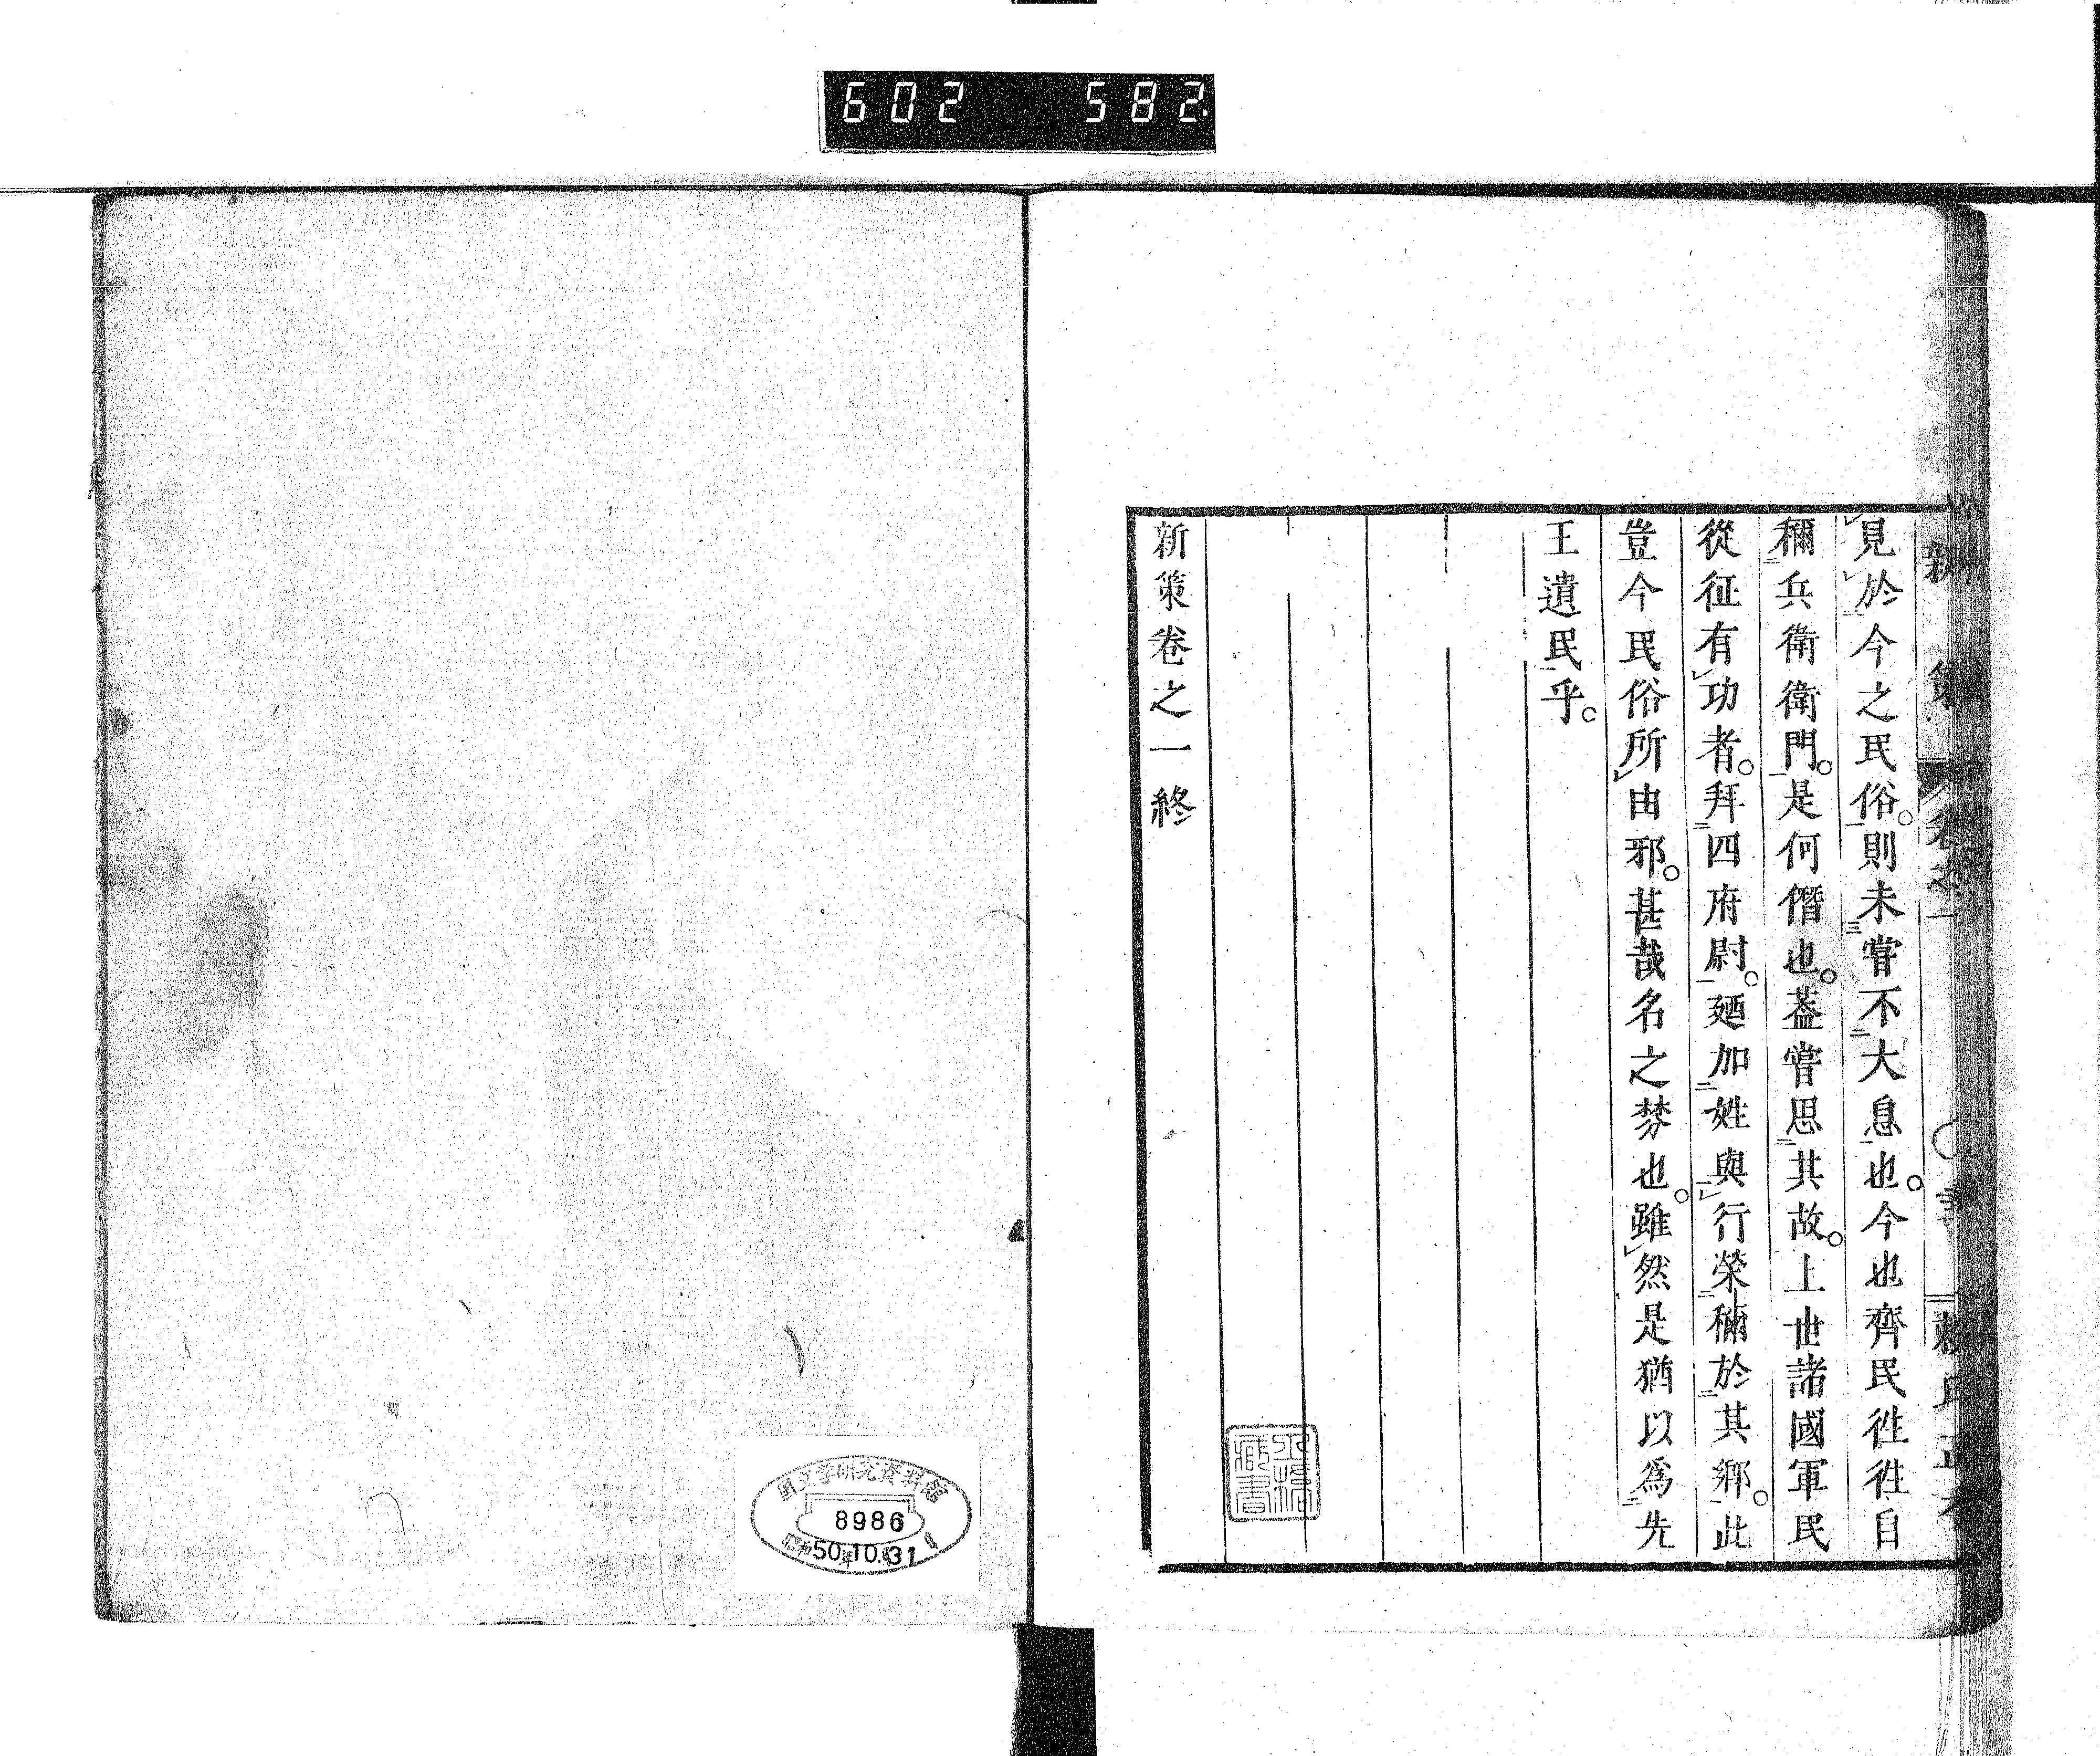 602 582.
見於今之民俗。則未嘗不大息也。今也齊民徃徃自
稱兵衛衛門。是何僭也。蓋嘗思其故。上世諸國軍民
從征有功者。拜四府尉。廼加姓與行榮稱於其鄉。此
豈今民俗所由邪。甚哉名之棼也。雖然是猶以爲先
王遺民乎。
新策卷之一終
國文學研究資料館
8986
昭和50年10月31日